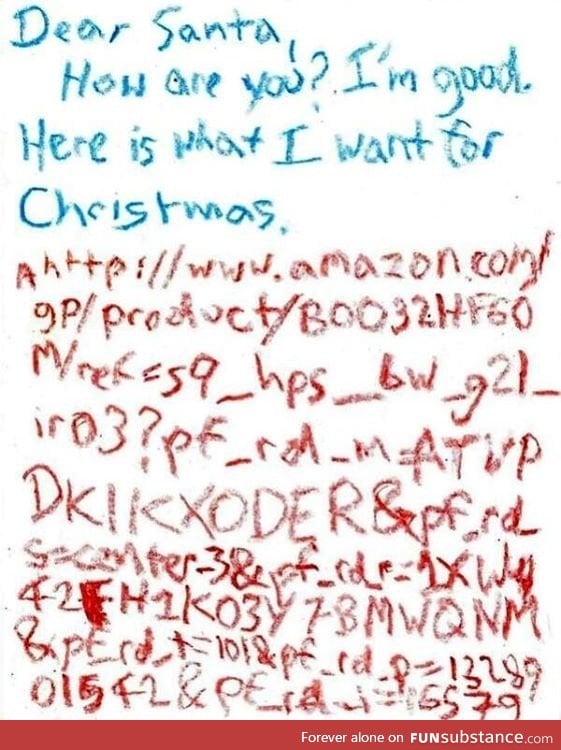 Dear Santa,
How are you? I'm good.
Here is what I want for
Christmas.
A http://www.amazon.com/
gp/product/B0032HF60
M/ref=s9_hps_bw_g21_
ir03?pf_rd_m=ATVP
DKIKX0DER&pf_rd_
s=center-3&pf_rd_r=1XWY
42FH1K03Y7BMWQNM
&pf_rd_t=101&pf_rd_p=13289
01542&pf_rd_i=16579
Forever alone on FUNsubstance.com